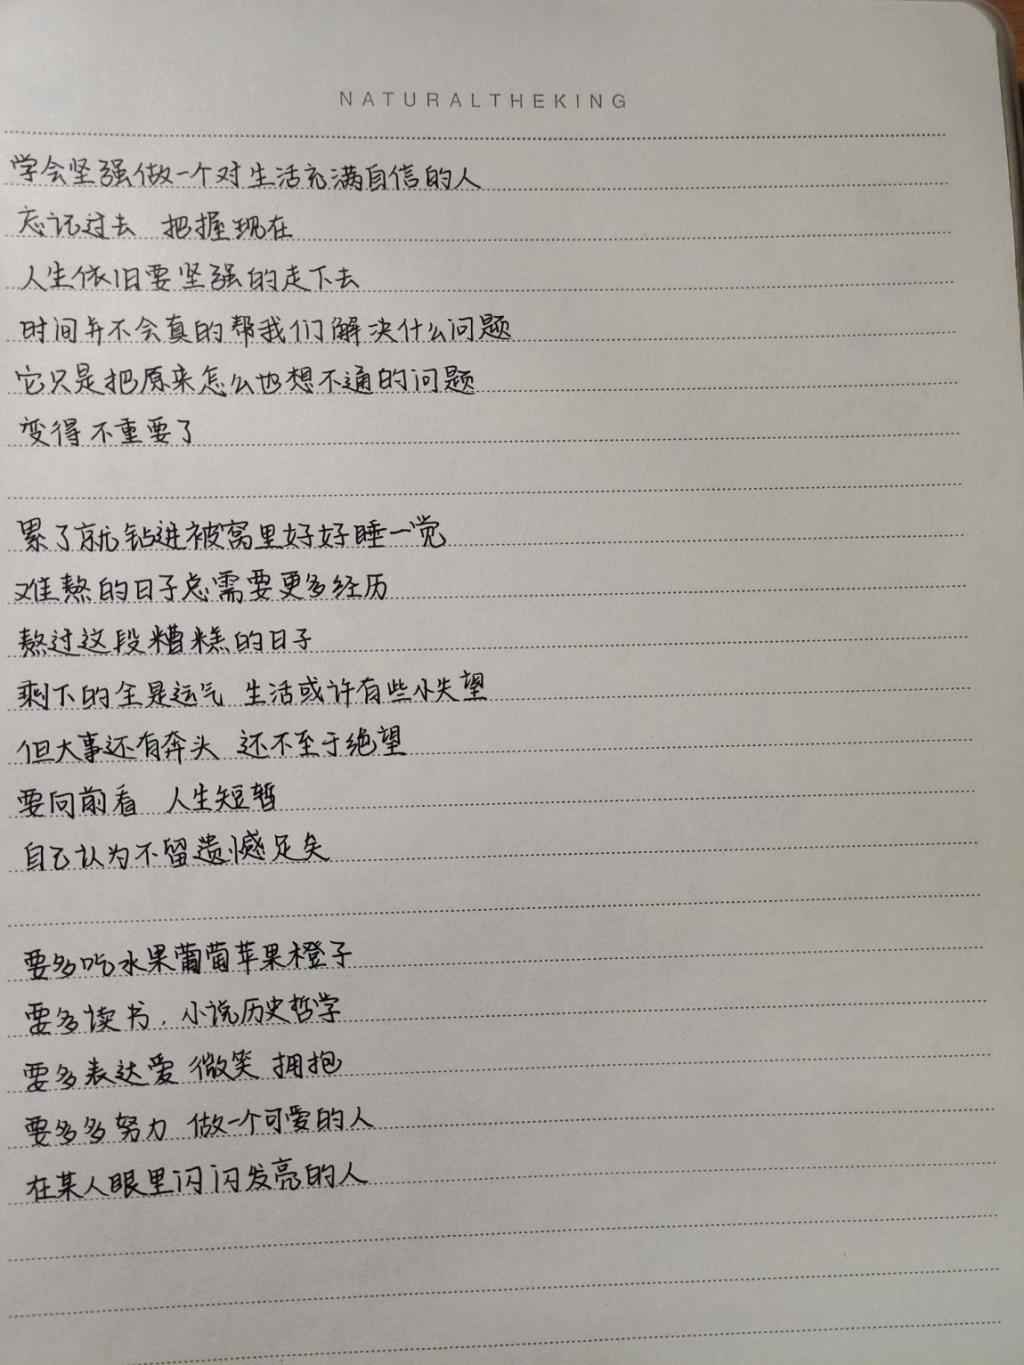 NATURALTHEKING
学会坚强做一个对生活充满自信的人
忘记过去 把握现在
人生依旧要坚强的走下去
时间并不会真的帮我们解决什么问题
它只是把原来怎么也想不通的问题
变得不重要了
累了就钻进被窝里好好睡一觉
难熬的日子总需要更多经历
熬过这段糟糕的日子
剩下的全是运气 生活或许有些小失望
但大事还有奔头 还不至于绝望
要向前看 人生短暂
自己认为不留遗憾足矣
要多吃水果葡萄苹果橙子
要多读书，小说历史哲学
要多表达爱 微笑 拥抱
要多多努力 做一个可爱的人
在某人眼里闪闪发亮的人